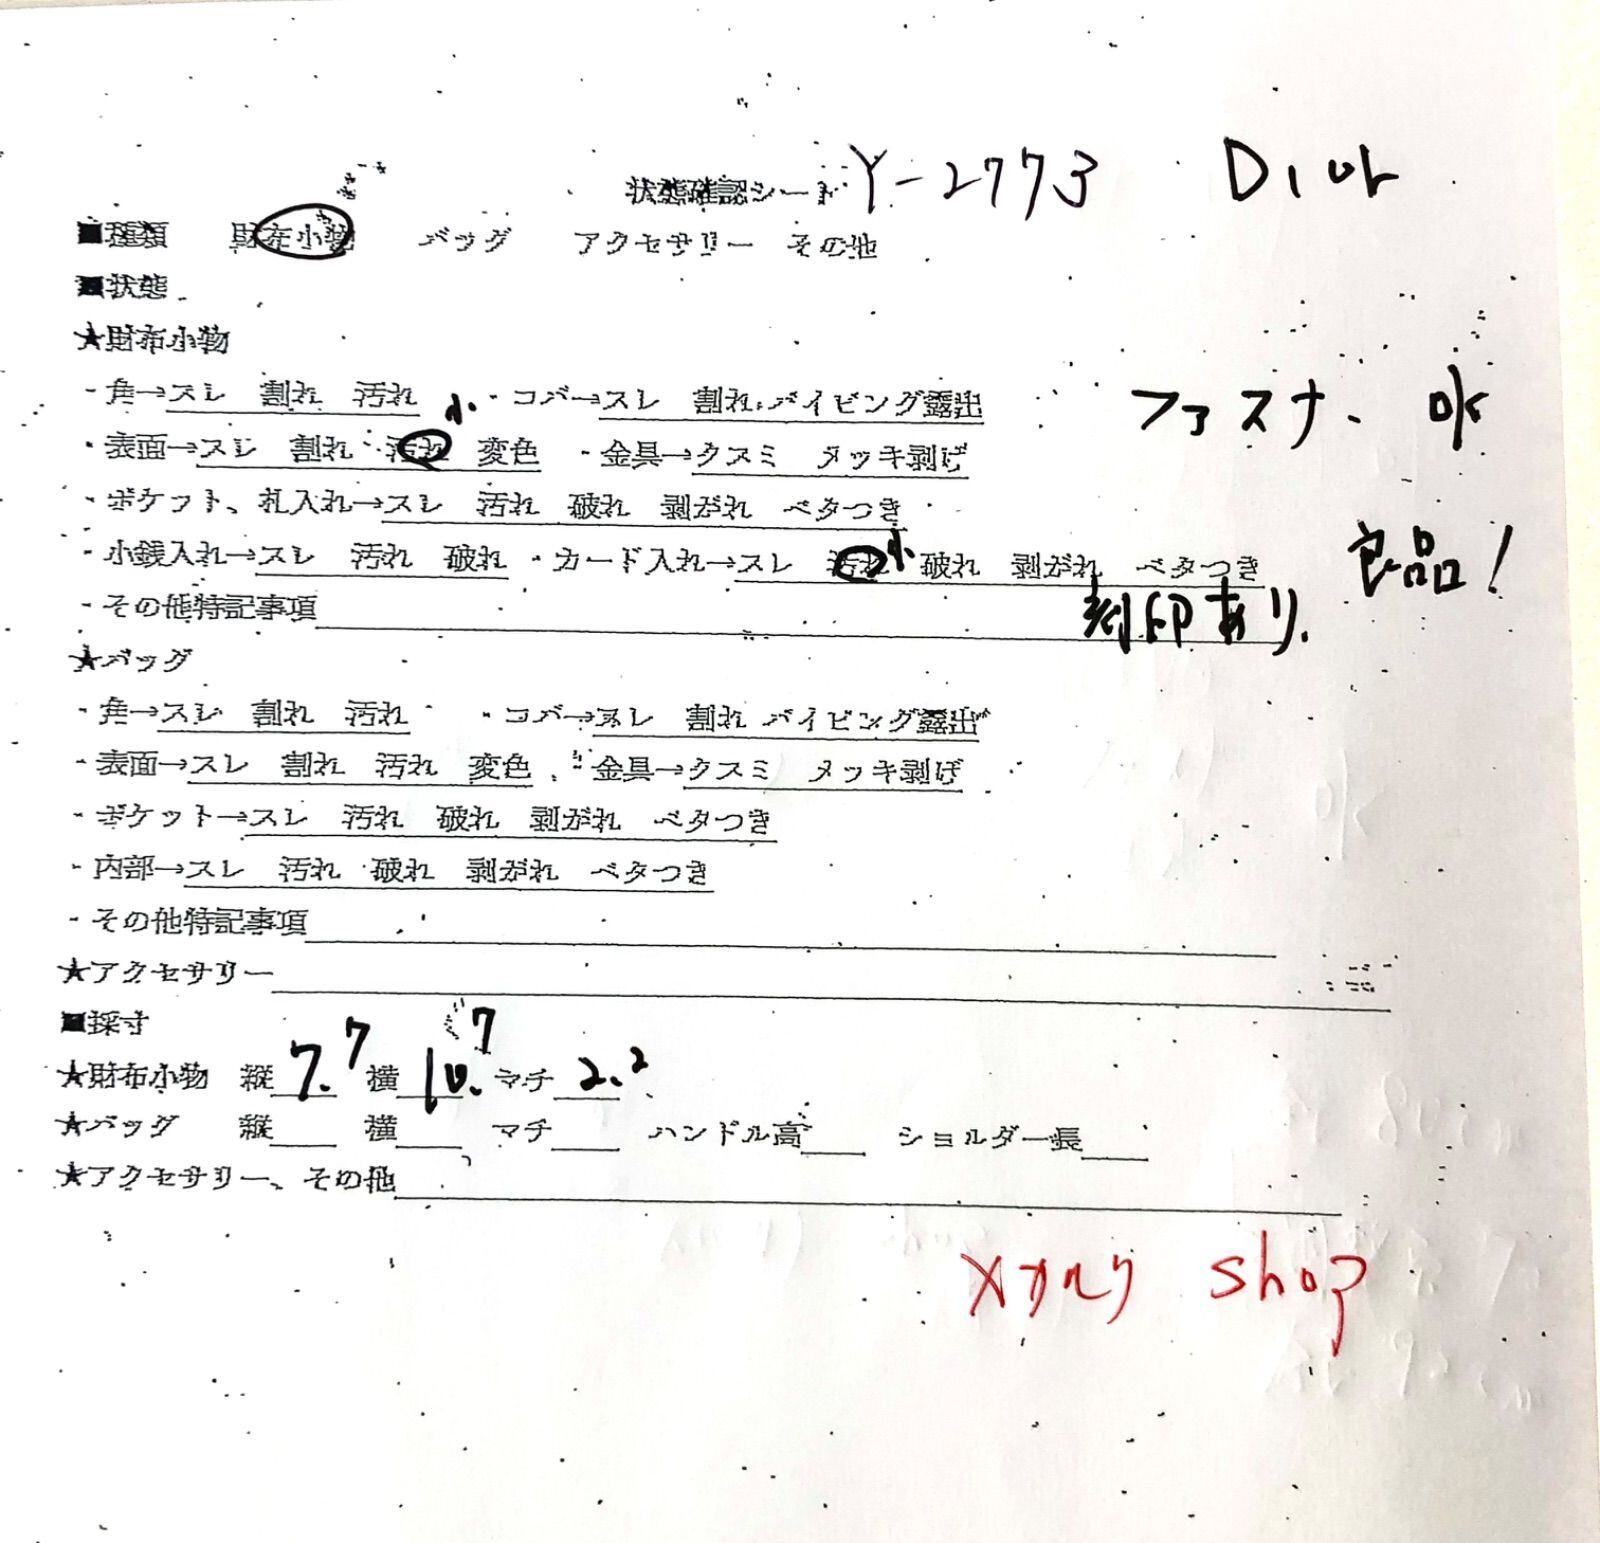 状態確認シート Y-2773 Dior
■種類 財布小物 バッグ アクセサリー その他
■状態
★財布小物
・角→スレ 割れ 汚れ ・コバ→スレ 割れ パイピング露出 ファスナー ok
・表面→スレ 割れ 汚れ 小 変色 ・金具→クスミ メッキ剥げ
・ポケット、札入れ→スレ 汚れ 破れ 剥がれ ベタつき
・小銭入れ→スレ 汚れ 破れ ・カード入れ→スレ 汚れ 小 破れ 剥がれ ベタつき 良品!
・その他特記事項 刻印あり.
★バッグ
・角→スレ 割れ 汚れ ・コバ→スレ 割れ パイピング露出
・表面→スレ 割れ 汚れ 変色 ・金具→クスミ メッキ剥げ
・ポケット→スレ 汚れ 破れ 剥がれ ベタつき
・内部→スレ 汚れ 破れ 剥がれ ベタつき
・その他特記事項
★アクセサリー
■採寸
★財布小物 縦 7.7 横 10.7 マチ 2.2
★バッグ 縦 横 マチ ハンドル高 ショルダー長
★アクセサリー、その他
メルカリ shop